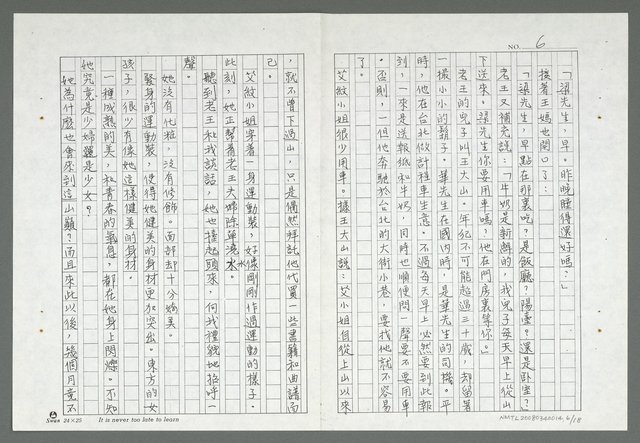 NO. 6
「梁先生,早。昨晚睡得還好嗎?」
接著王媽也開口了:
「梁先生,早點在那裏吃?是飯廳?陽臺?還是卧室?」
老王又補充說:「牛奶是新鮮的,我兒子每天早上從山
下送來。梁先生你要用車嗎?他在門房裏等你。」
老王的兒子叫王大山。年紀不可能超過三十歲,却留著
一撮小小的鬍子。華先生在國內時,是華先生的司機。平
時,他在台北做計程車生意。不過每天早上必然要到此報
到,一來是送報紙和牛奶,同時也順便問一聲要不要用車
。否則,一但他奔馳於台北的大街小巷,要找他就不容易
了。
艾紋小姐很少用車。據王大山說:艾小姐自從上山以來
,就不曾下過山,只是偶然拜託他代買一些書籍和曲譜而
已。
艾紋小姐穿著一身運動裝,好像剛剛作過運動的樣子。
此刻,她正幫著老王夫婦除草澆水。
聽到老王和我談話,她也擡起頭來,向我禮貌地招呼一
聲。
她沒有化粧,沒有修飾。面部却十分姣美。
緊身的運動裝,使得她健美的身材更加突出。東方的女
孩子,很少有像她這樣健美的身材。
一種成熟的美,和青春的氣息,都在她身上閃爍。不知
她究竟是少婦還是少女?
她為什麼也會來到這山巔?而且來此以後,幾個月竟不
SWAN 24×25 It is never too late to learn
NMTL20080340014, 6/18